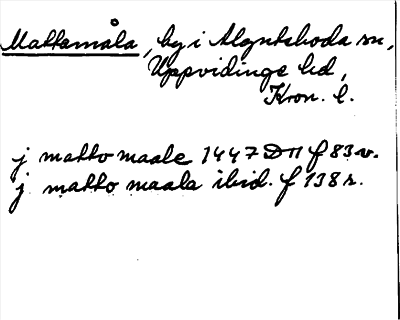 Mattamåla, by i Algutsboda sn,
Uppvidinge hd,
Kron. l.
j matto maale 1447 D 11 f 83 v.
j matto maala ibid. f 138 r.